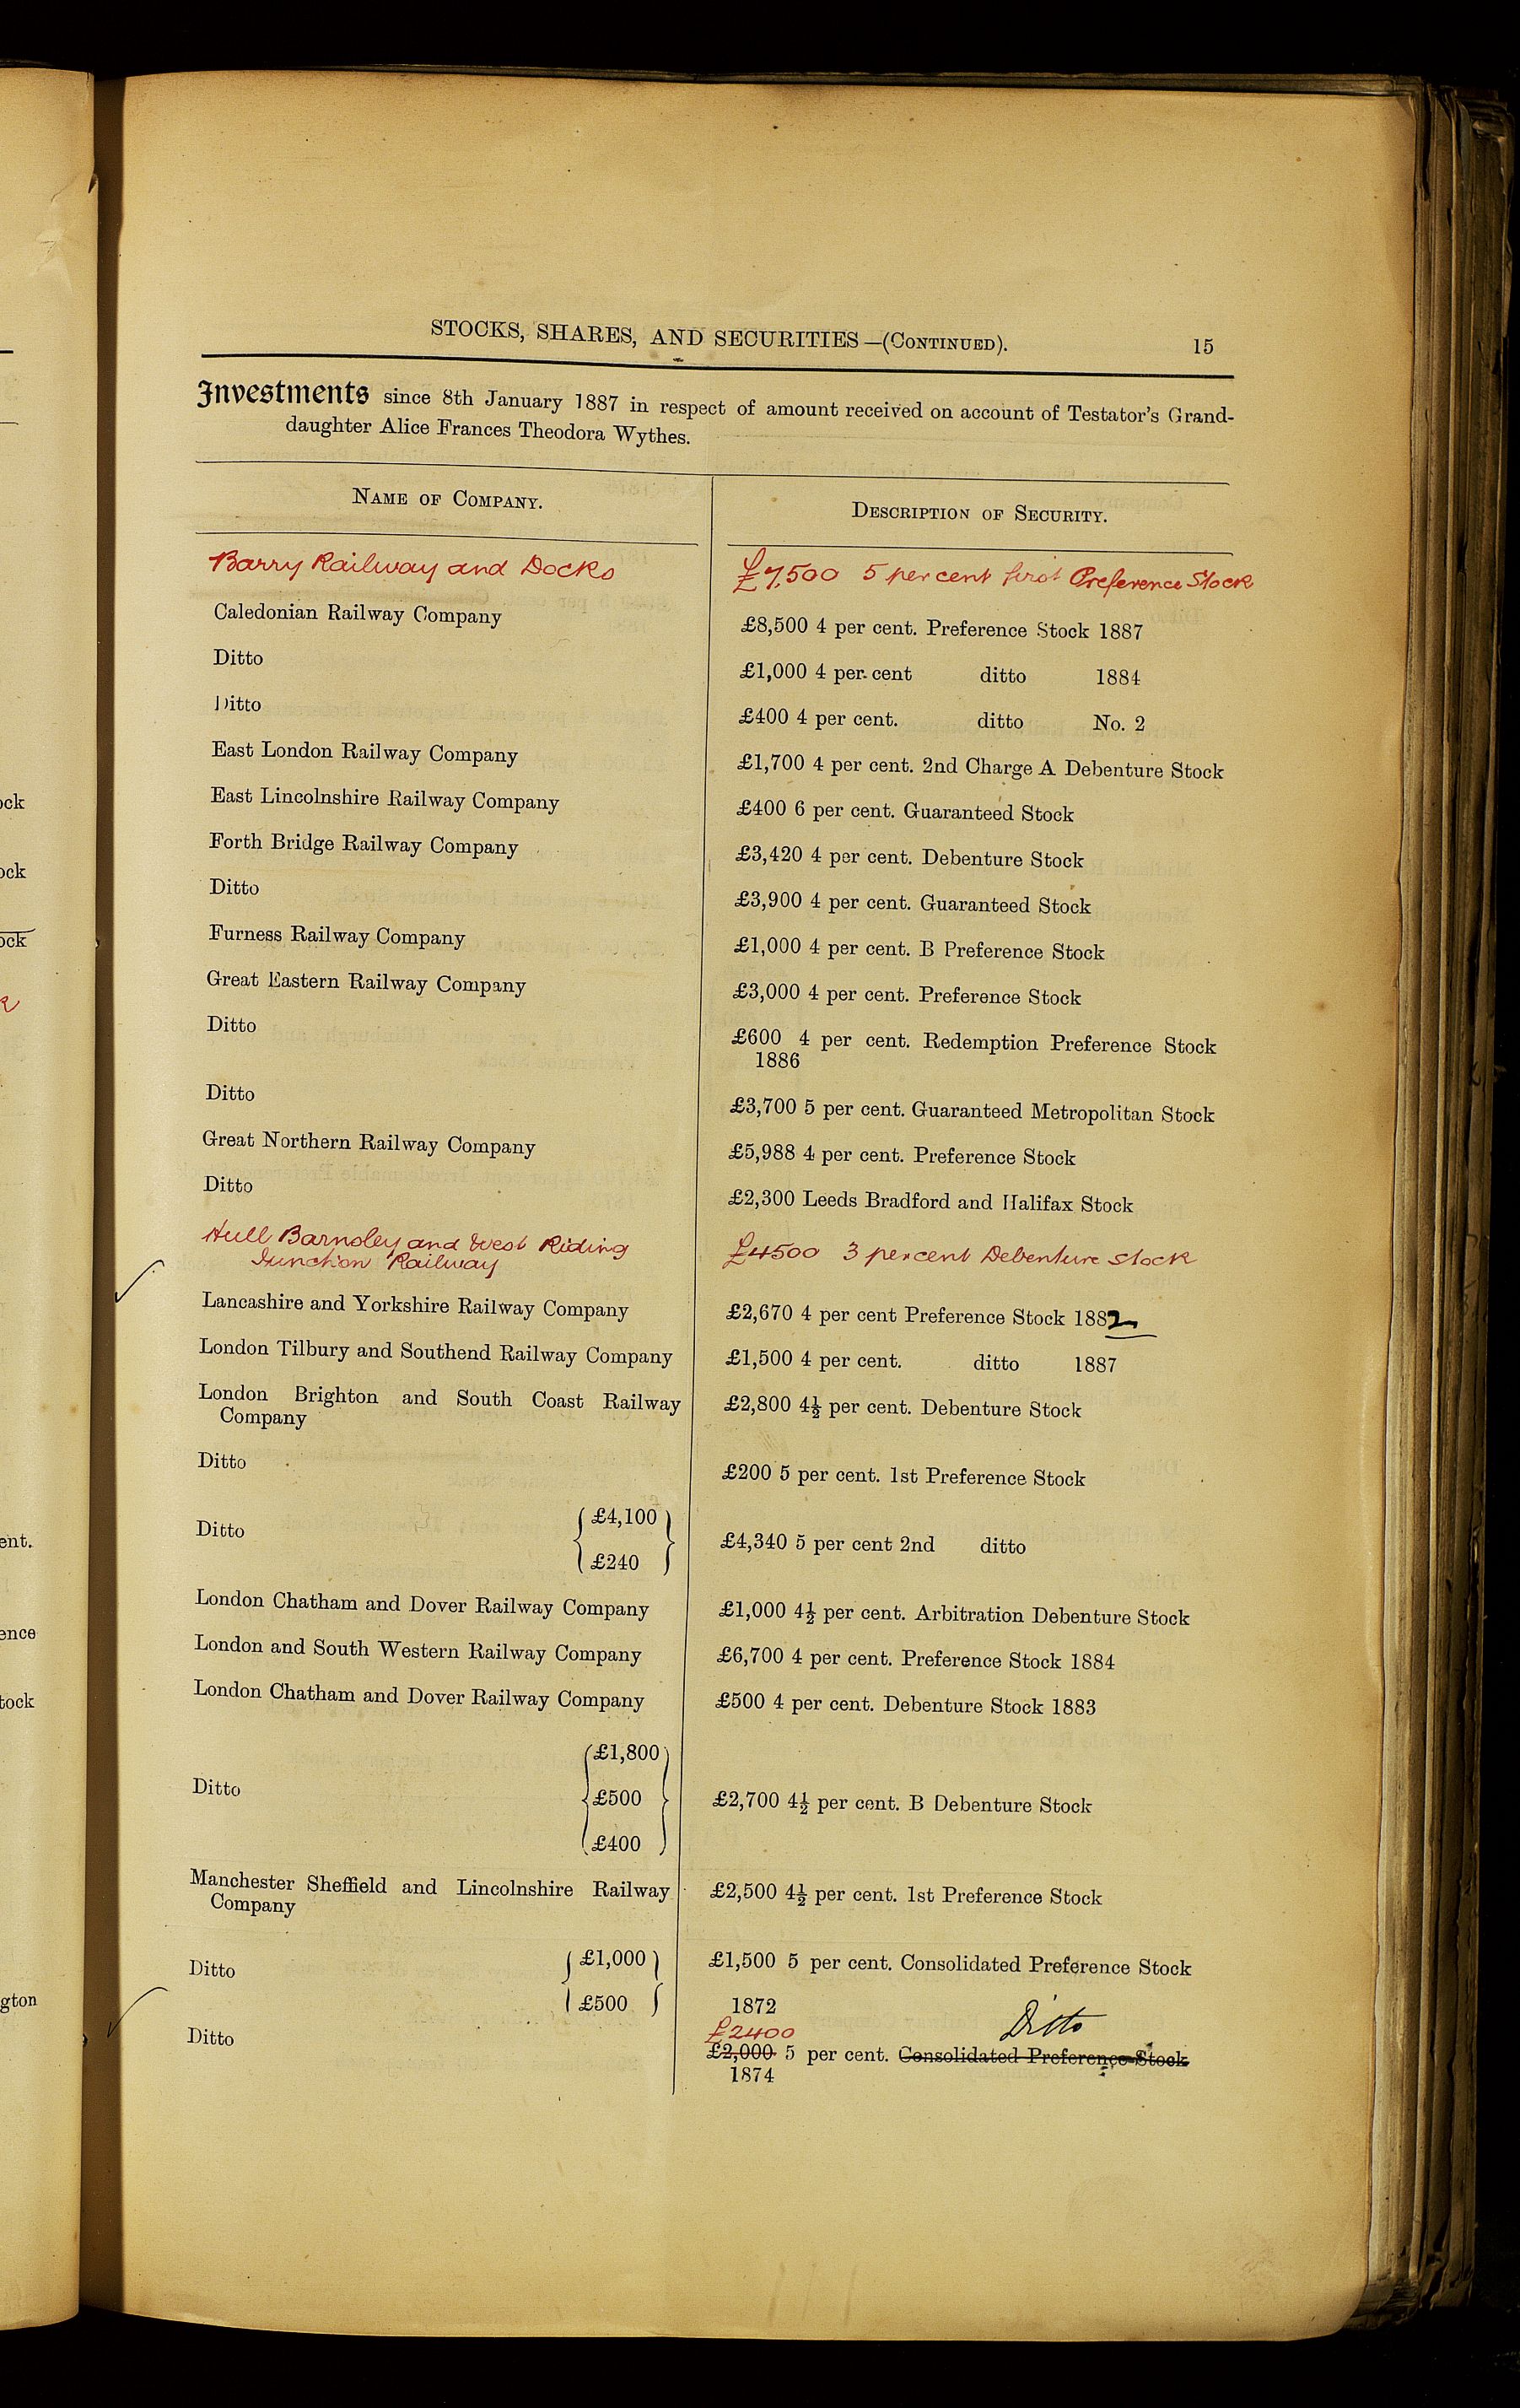 STOCKS, SHARES, AND SECURITIES—(CONTINUED). 15
Investments since 8th January 1887 in respect of amount received on account of Testator's Grand-
daughter Alice Frances Theodora Wythes.
NAME OF COMPANY. DESCRIPTION OF SECURITY.
Barry Railway and Docks £7,500 5 per cent first Preference Stock
Caledonian Railway Company £8,500 4 per cent. Preference Stock 1887
Ditto £1,000 4 per cent ditto 1884
Ditto £400 4 per cent. ditto No. 2
East London Railway Company £1,700 4 per cent. 2nd Charge A Debenture Stock
East Lincolnshire Railway Company £400 6 per cent. Guaranteed Stock
Forth Bridge Railway Company £3,420 4 per cent. Debenture Stock
Ditto £3,900 4 per cent. Guaranteed Stock
Furness Railway Company £1,000 4 per cent. B Preference Stock
Great Eastern Railway Company £3,000 4 per cent. Preference Stock
Ditto £600 4 per cent. Redemption Preference Stock
1886
Ditto £3,700 5 per cent. Guaranteed Metropolitan Stock
Great Northern Railway Company £5,988 4 per cent. Preference Stock
Ditto £2,300 Leeds Bradford and Halifax Stock
Hull Barnsley and West Riding £4500 3 per cent Debenture Stock
Junction Railway
Lancashire and Yorkshire Railway Company £2,670 4 per cent Preference Stock 1882
London Tilbury and Southend Railway Company £1,500 4 per cent. ditto 1887
London Brighton and South Coast Railway £2,800 4½ per cent. Debenture Stock
Company
Ditto £200 5 per cent. 1st Preference Stock
£4,100
Ditto £4,340 5 per cent 2nd ditto
£240
London Chatham and Dover Railway Company £1,000 4½ per cent. Arbitration Debenture Stock
London and South Western Railway Company £6,700 4 per cent. Preference Stock 1884
London Chatham and Dover Railway Company £500 4 per cent. Debenture Stock 1883
£1,800
Ditto £500 £2,700 4½ per cent. B Debenture Stock
£400
Manchester Sheffield and Lincolnshire Railway £2,500 4½ per cent. 1st Preference Stock
Company
Ditto £1,000 £1,500 5 per cent. Consolidated Preference Stock
£500 1872
£2400 Ditto
Ditto £2,000 5 per cent. Consolidated Preference Stock
1874
ock
ock
ock
ent.
ence
tock
gton